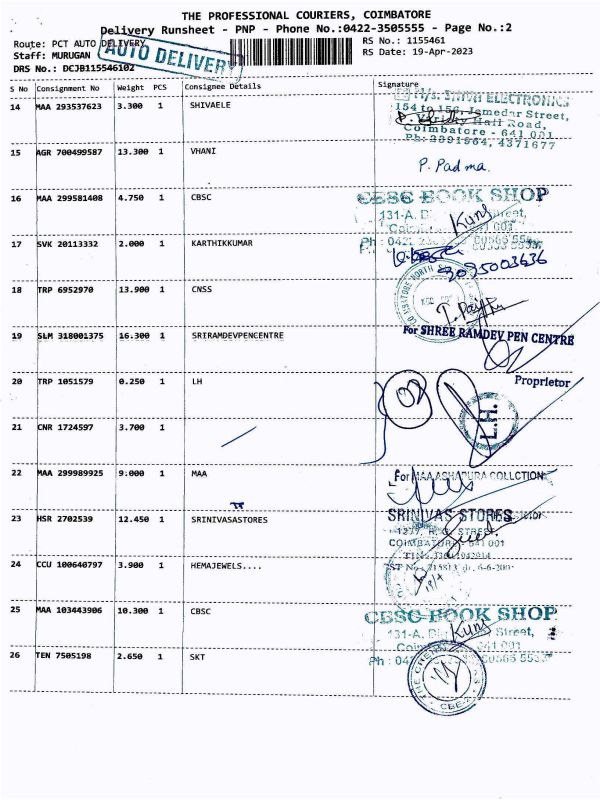 THE PROFESSIONAL COURIERS, COIMBATORE
Delivery Runsheet - PNP - Phone No.:0422-3505555 - Page No.:2
Route: PCT AUTO DELIVERY
RS No.: 1155461
Staff: MURUGAN
RS Date: 19-Apr-2023
DRS No.: DCJB115546102
AUTO DELIVERY
S No Consignment No Weight PCS Consignee Details Signature
14 MAA 293537623 3.300 1 SHIVAELE
ELECTRONICS
154 to 156, Jamedar Street,
Hall Road,
Coimbatore - 641 001
15 AGR 700499587 13.300 1 VHANI
P. Padma
16 MAA 299581408 4.750 1 CBSC
CBSC BOOK SHOP
131-A, Street,
17 SVK 20113332 2.000 1 KARTHIKKUMAR
18 TRP 6952970 13.900 1 CNSS
19 SLM 318001375 16.300 1 SRIRAMDEVPENCENTRE
For SHREE RAMDEV PEN CENTRE
Proprietor
20 TRP 1051579 0.250 1 LH
L.H.
21 CNR 1724597 3.700 1
22 MAA 299989925 9.000 1 MAA
For MAA ASHAPURA COLLCTION
23 HSR 2702539 12.450 1 SRINIVASASTORES
SRINIVAS STORES
STREET
COIMBATORE - 641 001
24 CCU 100640797 3.900 1 HEMAJEWELS....
25 MAA 103443906 10.300 1 CBSC
CBSC BOOK SHOP
131-A, Street,
26 TEN 7505198 2.650 1 SKT